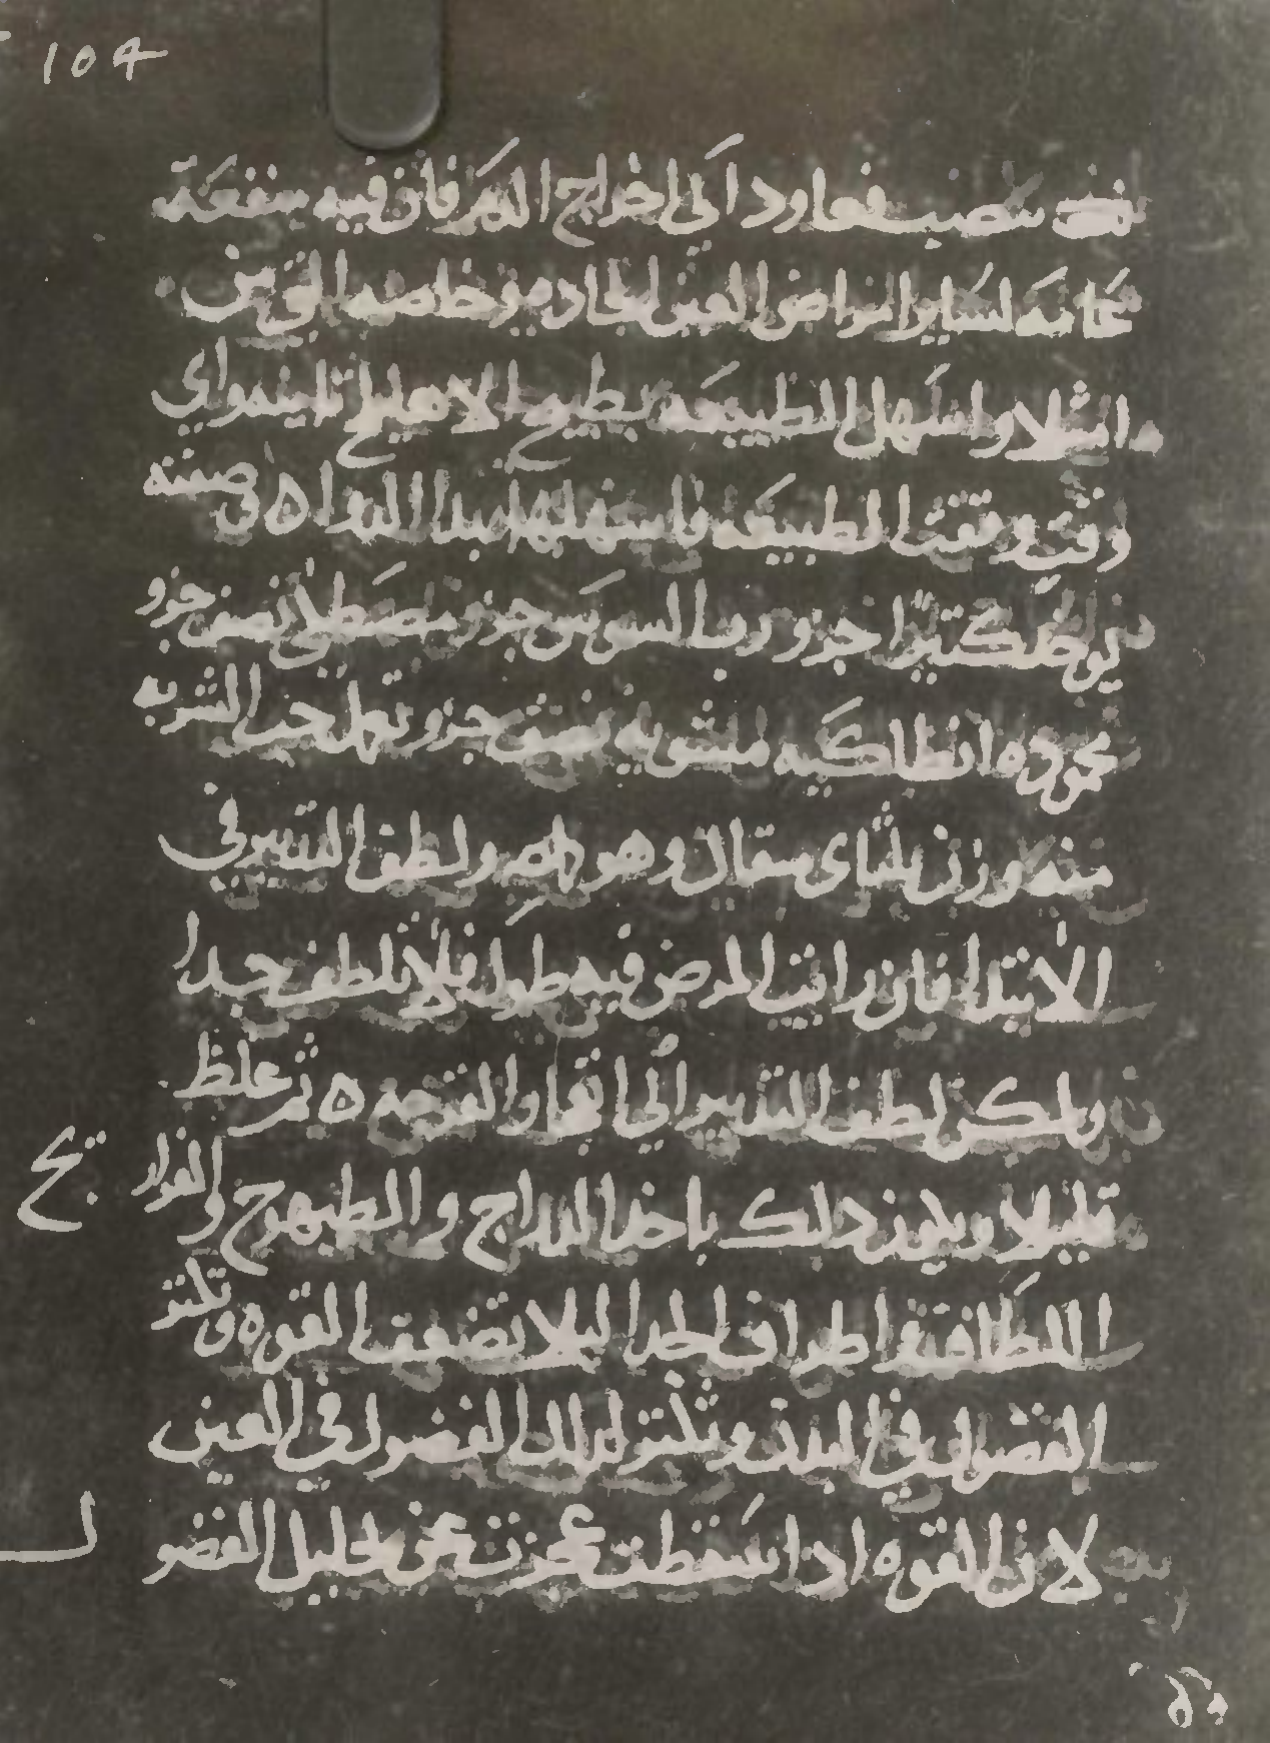 104
سصب فعاود الى اخراج الدم فان فيه منفعة
عامه لساير امراض العين الحاده وخاصه التي من
امتلا واسهل الطبيعه بطبيخ الاهليلج تاينه واي
وقت وقفت الطبيعه فاسهلها بهذا الدوا ه صفته
يوخذ كتيرا جزو رب السوس جزو مصطكى نصف جزو
محموده انطاكيه مشويه نصف جزو تعمل حب الشربه
منه وزن ثلثاى مثقال وهو اصم ولطف التدبير في
الابتدا فان رايت المرض فيه طول فلا تلطف جدا
ولكن لطف التدبير الى انفجار القرحه ه ثم غلظ
قليلا ويكون ذلك باخذ الدراج والطيهوج والفرار
يج
اللطاف واطراف الجدا ليلا تضعف القوه وتكثر
الفضول في البدن وتكثر لذلك الفضول في العين
لان القوه اذا سقطت عجزت عن تحليل الفضو
ل